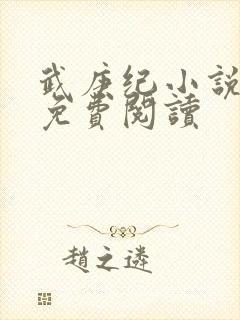 武庚纪小説
免費閱讀
趙之遴